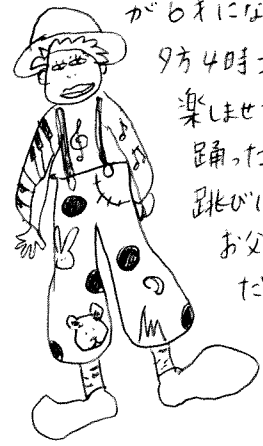 が6才にな
夕方4時
楽しませ
踊った
跳び
お父
だ